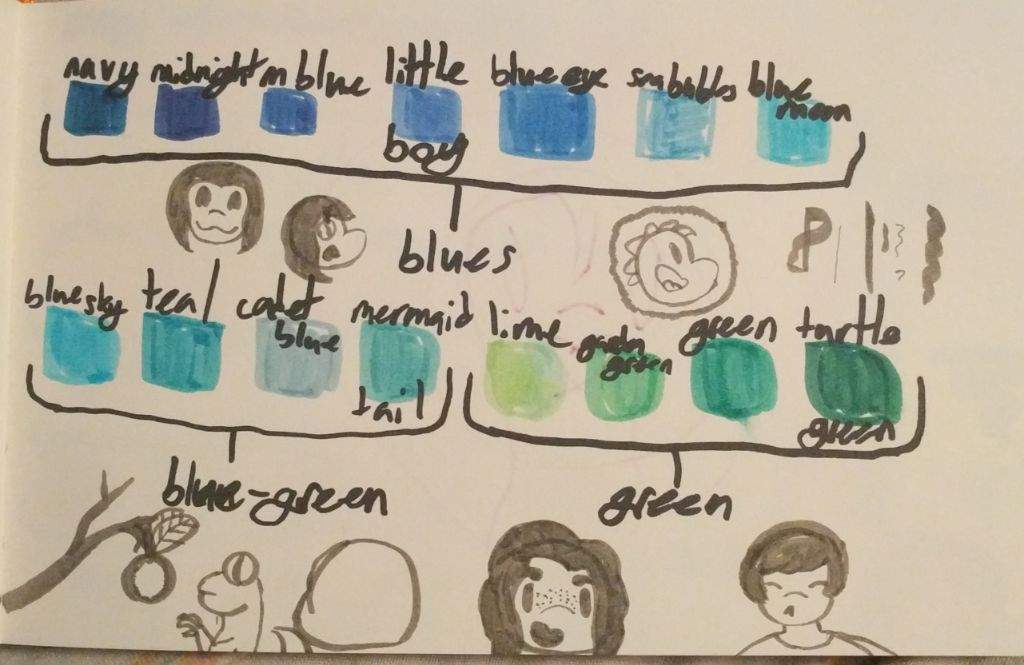 navy midnight m blue little blue eye sea bubbles blue
boy moon
blues
blue sky teal cadet mermaid lime garden green turtle
blue green
tail green
blue-green green